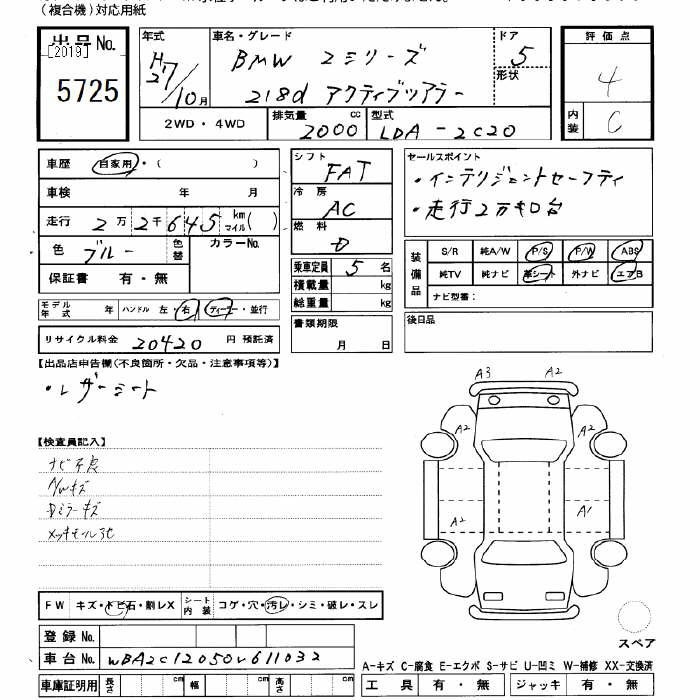 (複合機)対応用紙
出品No.
[2019]
5725
年式
H27/10月
車名・グレード
BMW 2シリーズ
218d アクティブツアラー
ドア
5
形状
評価点
4
内装
C
2WD・4WD
排気量
2000
cc
型式
LDA-2C20
車歴
自家用・( )
車検 年 月
走行 2万2千645 km マイル( )
色 ブルー 色替
カラーNo.
保証書 有・無
モデル年式 年 ハンドル 左・右 ディーラー・並行
リサイクル料金 20420 円 預託済
シフト
FAT
冷房
AC
燃料
D
乗車定員 5 名
積載量 kg
総重量 kg
書類期限
月 日
セールスポイント
・インテリジェントセーフティ
・走行2万キロ台
装備品
S/R 純A/W P/S P/W ABS
純TV 純ナビ 革シート 外ナビ エアB
ナビ型番:
後日品
【出品店申告欄(不良箇所・欠品・注意事項等)】
・レザーシート
【検査員記入】
ナビ不良
A/Wキズ
Dミラーキズ
メッキモール劣化
A3 A2
A2 A2
A2 A1
スペア
FW キズ・トビ石・割レX
シート内装 コゲ・穴・汚レ・シミ・破レ・スレ
登録No.
車台No. WBA2C12050V611032
車庫証明用 長さ cm 幅 cm 高さ cm
A-キズ C-腐食 E-エクボ S-サビ U-凹ミ W-補修 XX-交換済
工具 有・無 ジャッキ 有・無